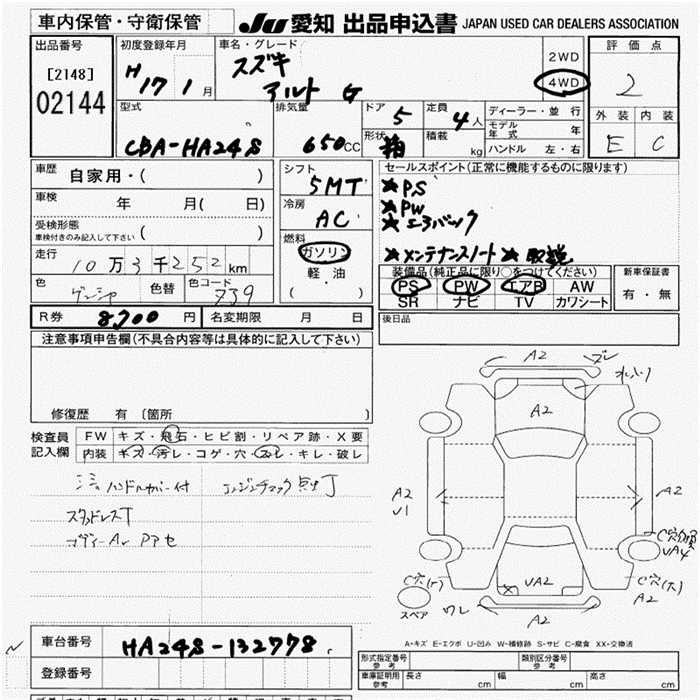 車内保管・守衛保管 JU 愛知 出品申込書 JAPAN USED CAR DEALERS ASSOCIATION
出品番号
[2148]
02144
初度登録年月
H 17 1 月
車名・グレード
スズキ
アルト G
2WD
4WD
評価点
2
外装 内装
E C
型式
CBA-HA24S
排気量
650 CC
ドア 5
形状 箱
定員 4 人
積載 kg
ディーラー・並行
モデル年式 年
ハンドル 左・右
車歴 自家用・( )
車検 年 月( 日)
受検形態
車検付きのみ記入して下さい ( )
走行 10万3千252km
色 色替 色コード Z39
シフト
5MT
冷房
AC
燃料
ガソリン
軽・油
( ・ )
セールスポイント(正常に機能するものに限ります)
★PS
★PW
★エアバック
★メンテナンスノート ★取説
装備品(純正品に限り○をつけてください)
PS PW エアB AW
SR ナビ TV カワシート
新車保証書
有・無
R券 8,700 円 名変期限 月 日
後日品
注意事項申告欄(不具合内容等は具体的に記入して下さい)
修復歴 有 〔箇所 〕
検査員記入欄
FW キズ・飛石・ヒビ割・リペア跡・X要
内装 キズ・汚レ・コゲ・穴・スレ・キレ・破レ
ハンドルカバー付 エンジンチェック点灯
スタッドレスT
A2 ズレ
A2
A2
U1
A2
UA4
C穴(大)
A2
UA2
ワレ
A2
スペア
A・キズ E・エクボ U・凹み W・補修跡 S・サビ C・腐食 XX・交換済
車台番号 HA24S-132778
登録番号
形式指定番号 参考 類別区分番号 参考
車庫証明用 参考 長さ cm 幅 cm 高さ cm